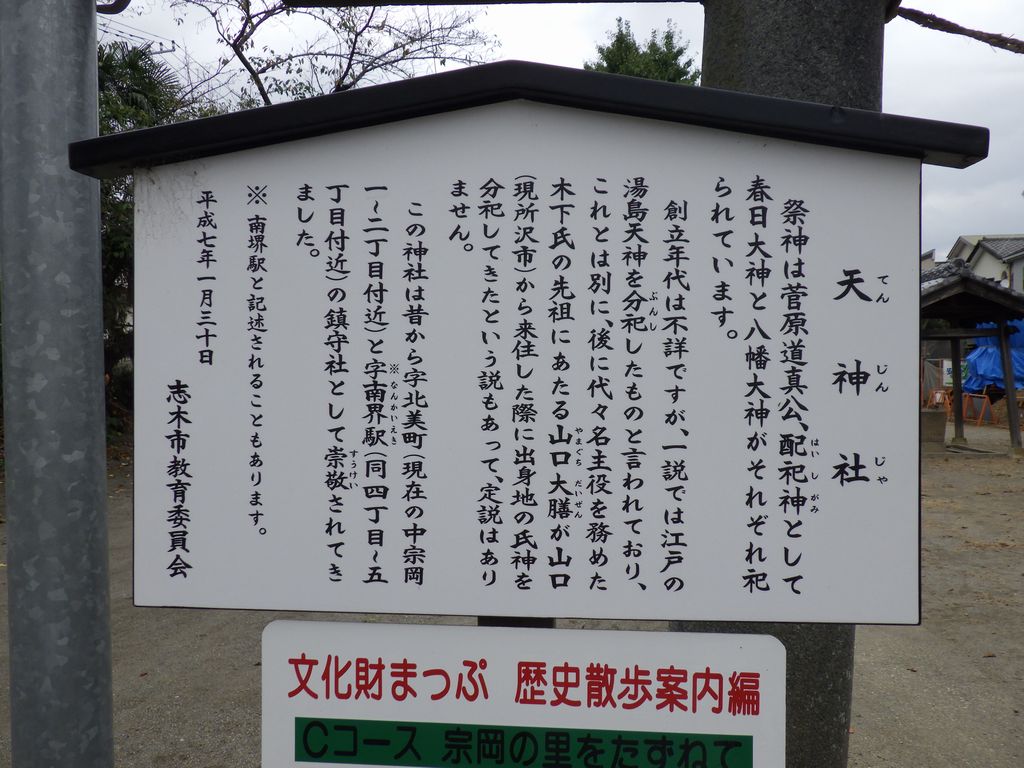 天神社
てんじんじや
祭神は菅原道真公、配祀神として
はいしがみ
春日大神と八幡大神がそれぞれ祀
られています。
創立年代は不詳ですが、一説では江戸の
湯島天神を分祀したものと言われており、
ぶんし
これとは別に、後に代々名主役を務めた
木下氏の先祖にあたる山口大膳が山口
やまぐちだいぜん
(現所沢市)から来住した際に出身地の氏神を
分祀してきたという説もあって、定説はあり
ません。
この神社は昔から字北美町(現在の中宗岡
一〜二丁目付近)と字南界駅(同四丁目〜五
※なんかいえき
丁目付近)の鎮守社として崇敬されてき
すうけい
ました。
※南堺駅と記述されることもあります。
平成七年一月三十日
志木市教育委員会
文化財まっぷ 歴史散歩案内編
Cコース 宗岡の里をたずねて